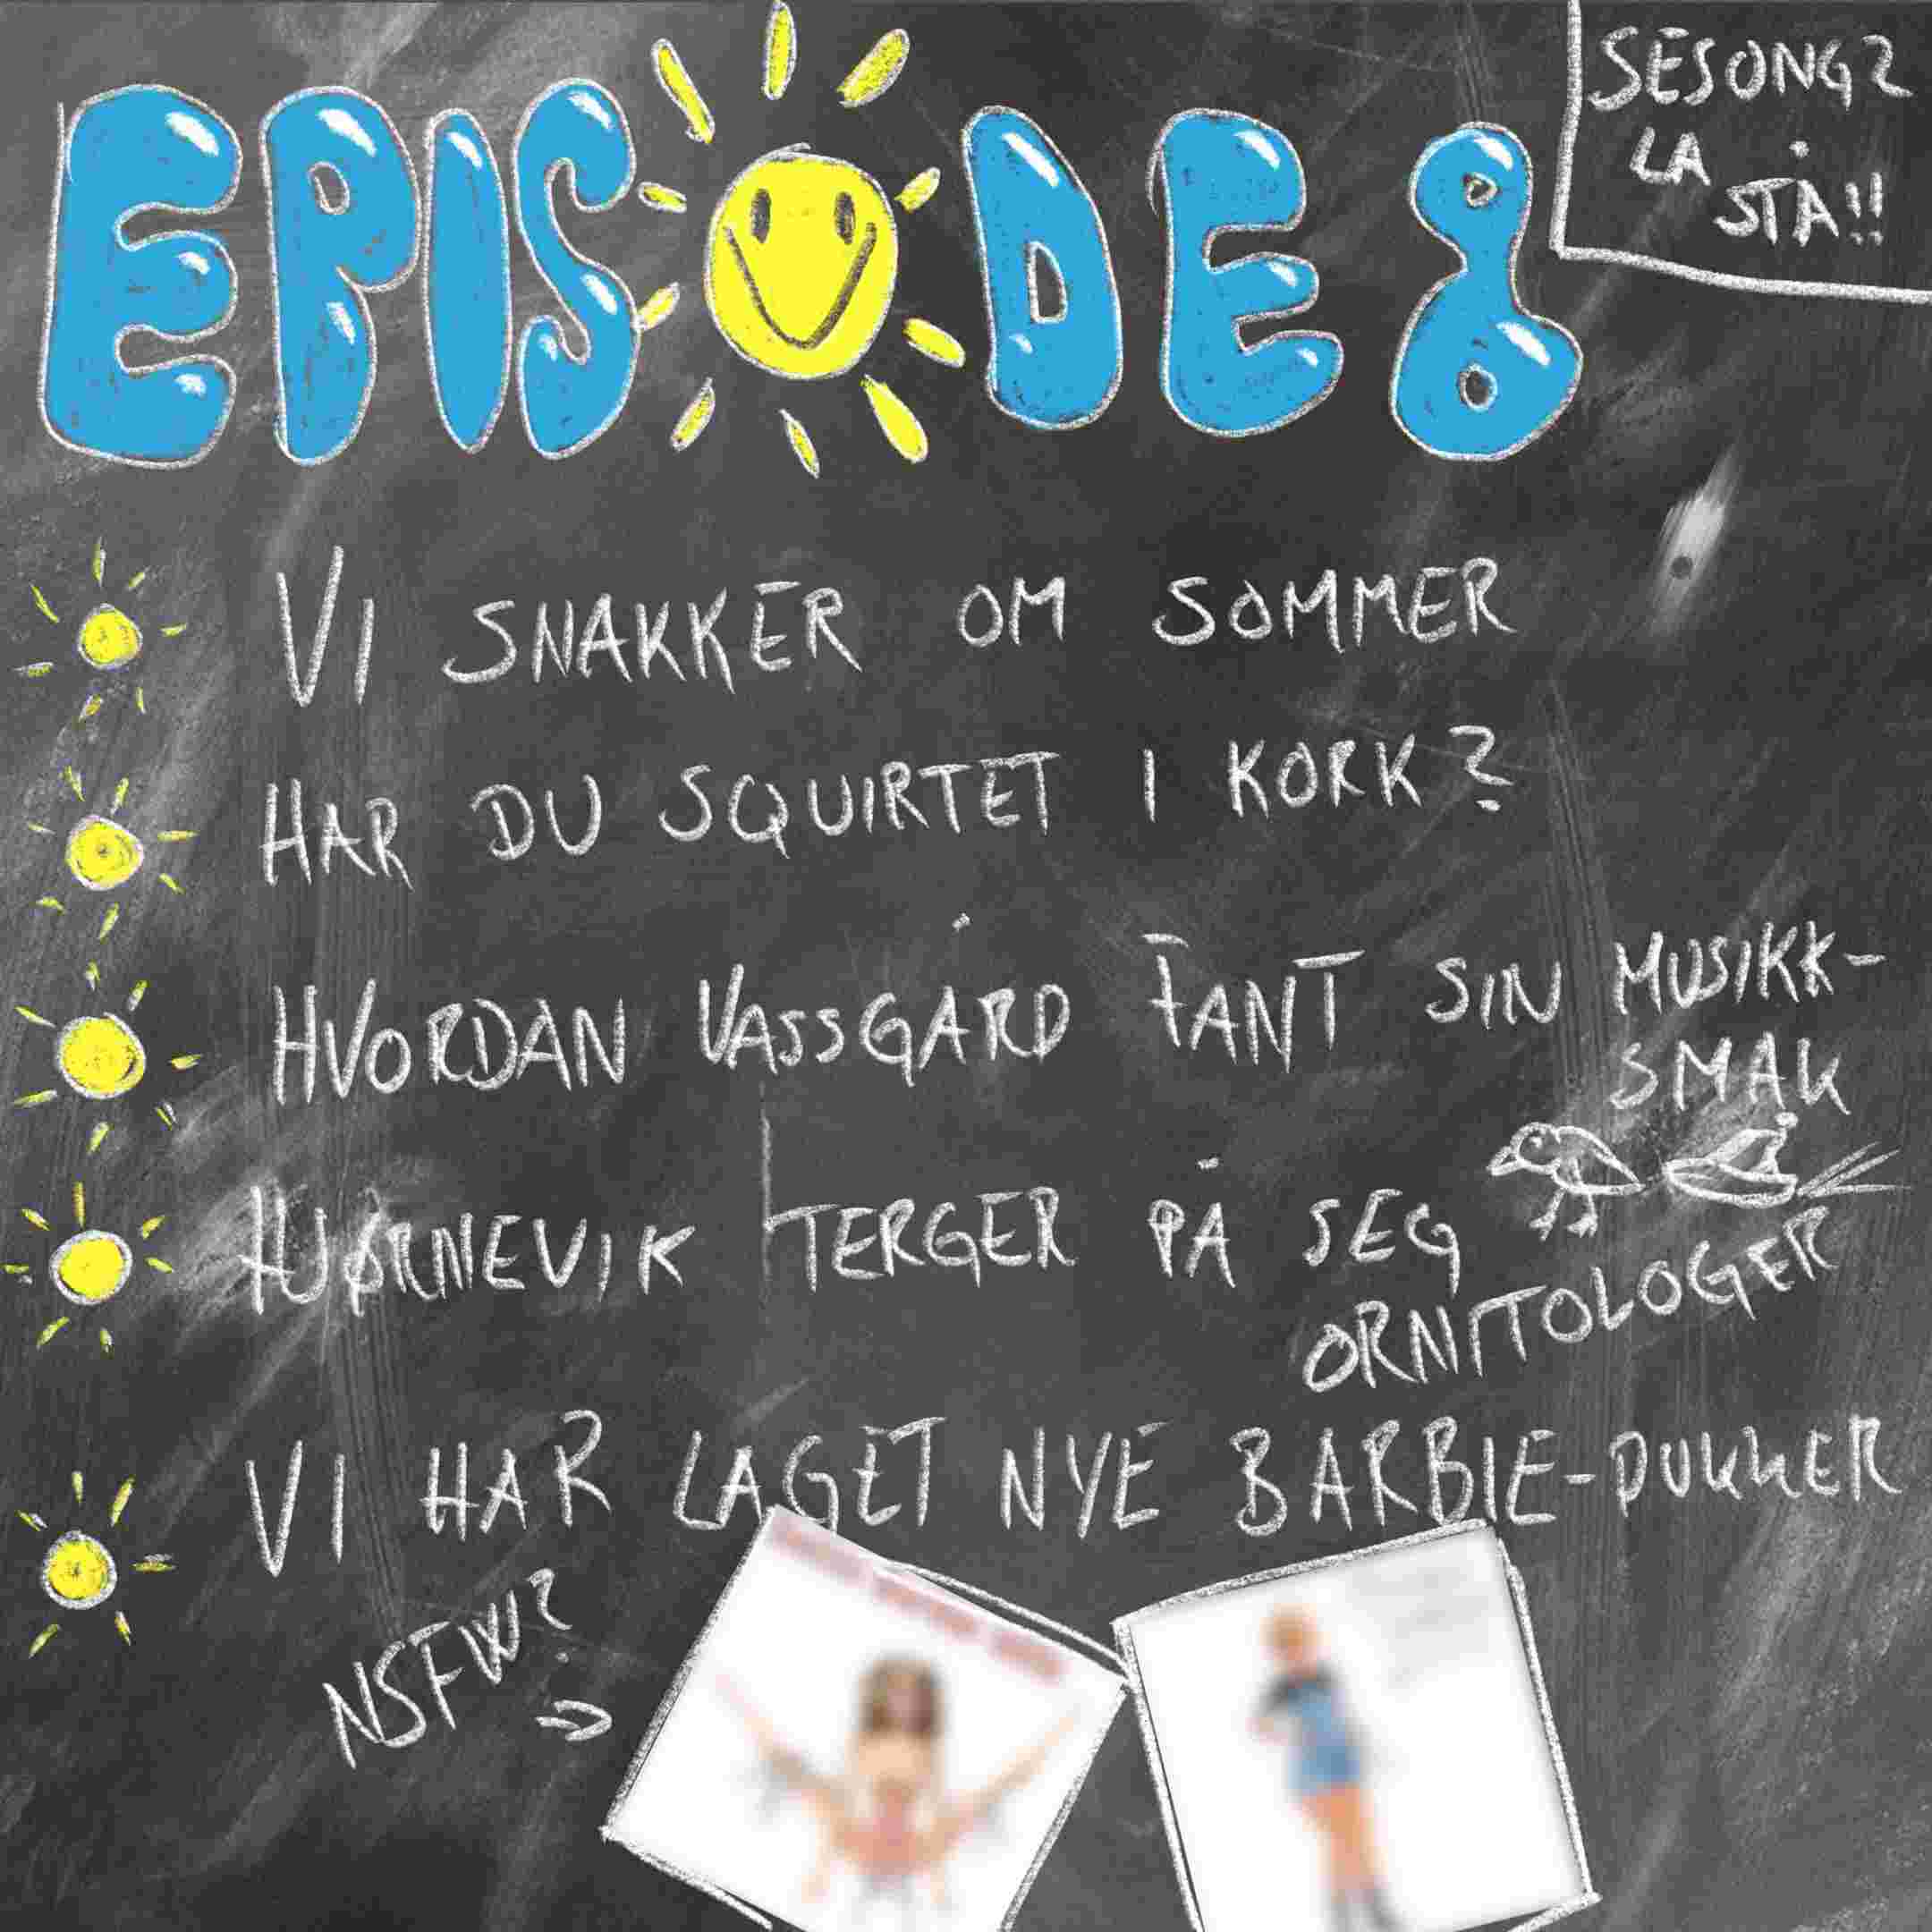 EPISODE 8
SESONG 2
LA
STÅ!!
VI SNAKKER OM SOMMER
HAR DU SQUIRTET I KORK?
HVORDAN VASSGÅRD FANT SIN MUSIKK-
SMAK
HJØRNEVIK TERGER PÅ SEG
ORNITOLOGER
VI HAR LAGET NYE BARBIE-DUKKER
NSFW?